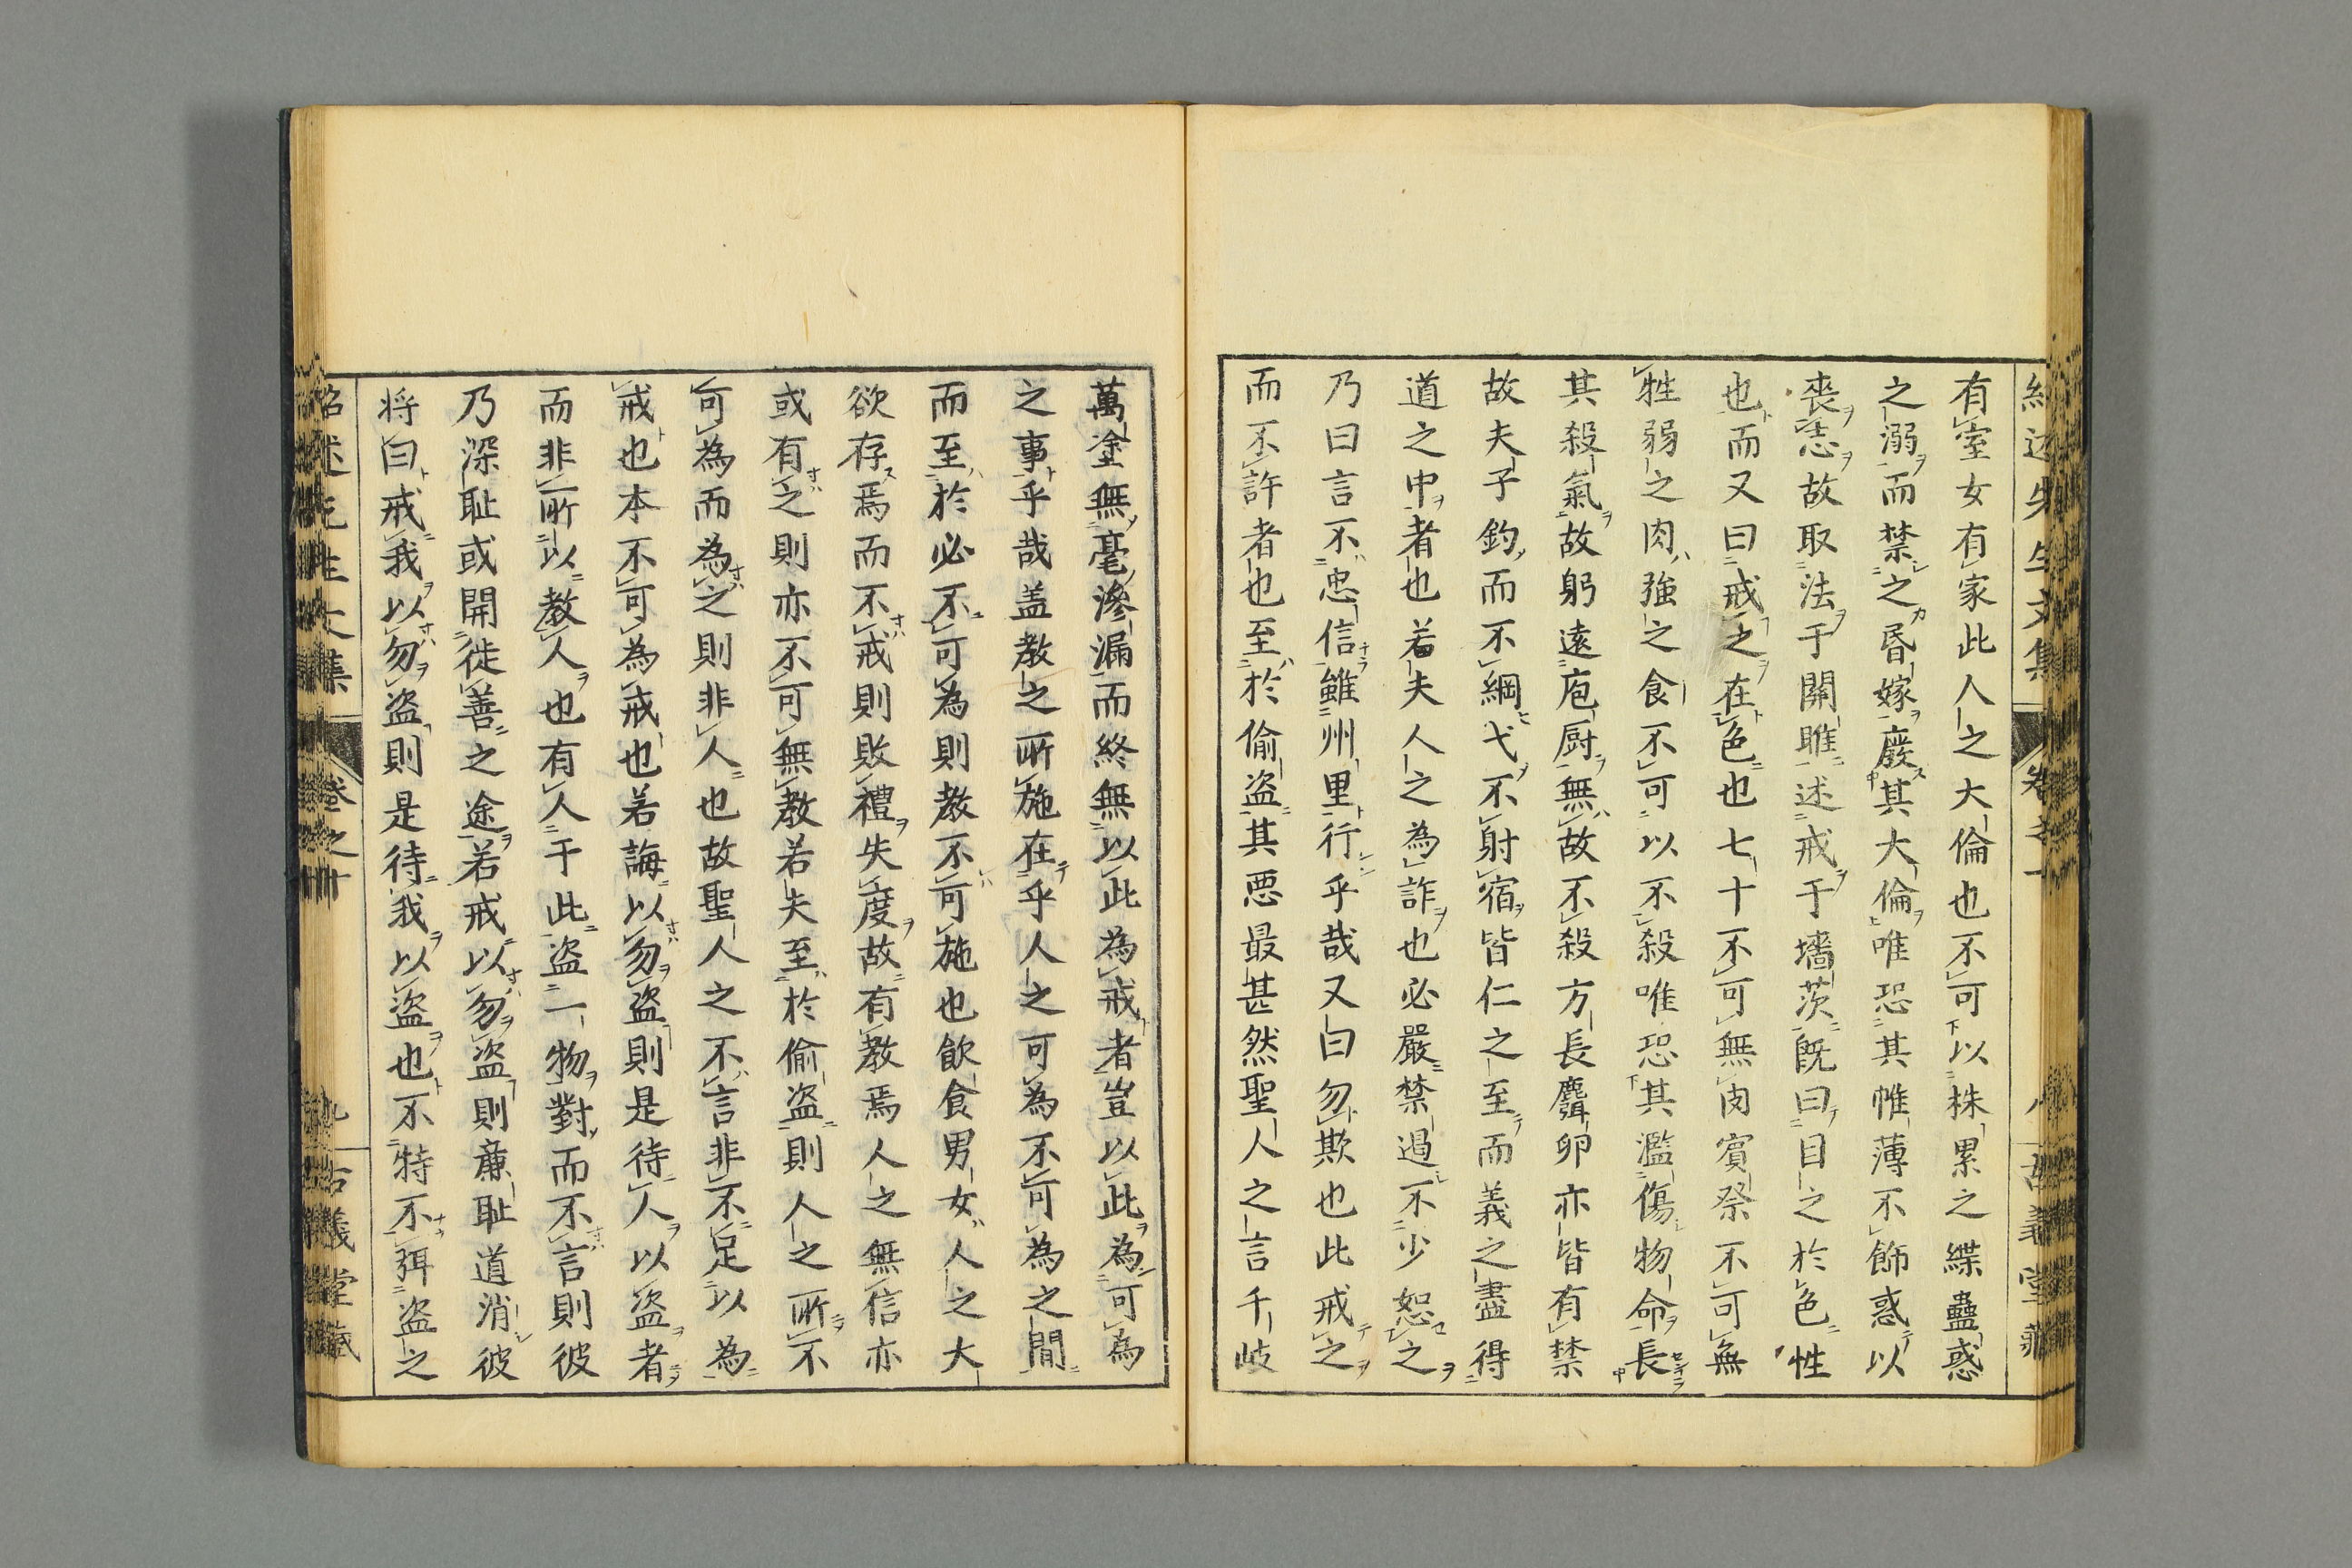 紹述先生文集 卷之十 八 古義堂藏
有室女有家此人之大倫也不可以株累之緤蠱惑
之溺而禁之昏嫁廢其大倫唯恐其帷薄不飾惑以
喪志故取法于關雎述戒于墻茨既曰目之於色性
也而又曰戒之在色也七十不可無肉賓祭不可無
牲弱之肉強之食不可以不殺唯恐其濫傷物命長
其殺氣故躬遠庖厨無故不殺方長麛卵亦皆有禁
故夫子釣而不綱弋不射宿皆仁之至而義之盡得
道之中者也若夫人之為詐也必嚴禁過不少恕之
乃曰言不忠信雖州里行乎哉又曰勿欺也此戒之
而不許者也至於偷盜其悪最甚然聖人之言千岐
萬塗無毫滲漏而終無以此為戒者豈以此為可為
之事乎哉盖教之所施在乎人之可為不可為之間
而至於必不可為則教不可施也飲食男女人之大
欲存焉而不戒則敗禮失度故有教焉人之無信亦
或有之則亦不可無教若夫至於偷盜則人之所不
可為而為之則非人也故聖人之不言非不足以為
戒也本不可為戒也若誨以勿盜則是待人以盜者
而非所以教人也有人于此盜一物對而不言則彼
乃深耻或開徙善之途若戒以勿盜則亷耻道消彼
将曰戒我以勿盜則是待我以盜也不特不弭盜之
紹述先生文集 卷之十 九 古義堂藏